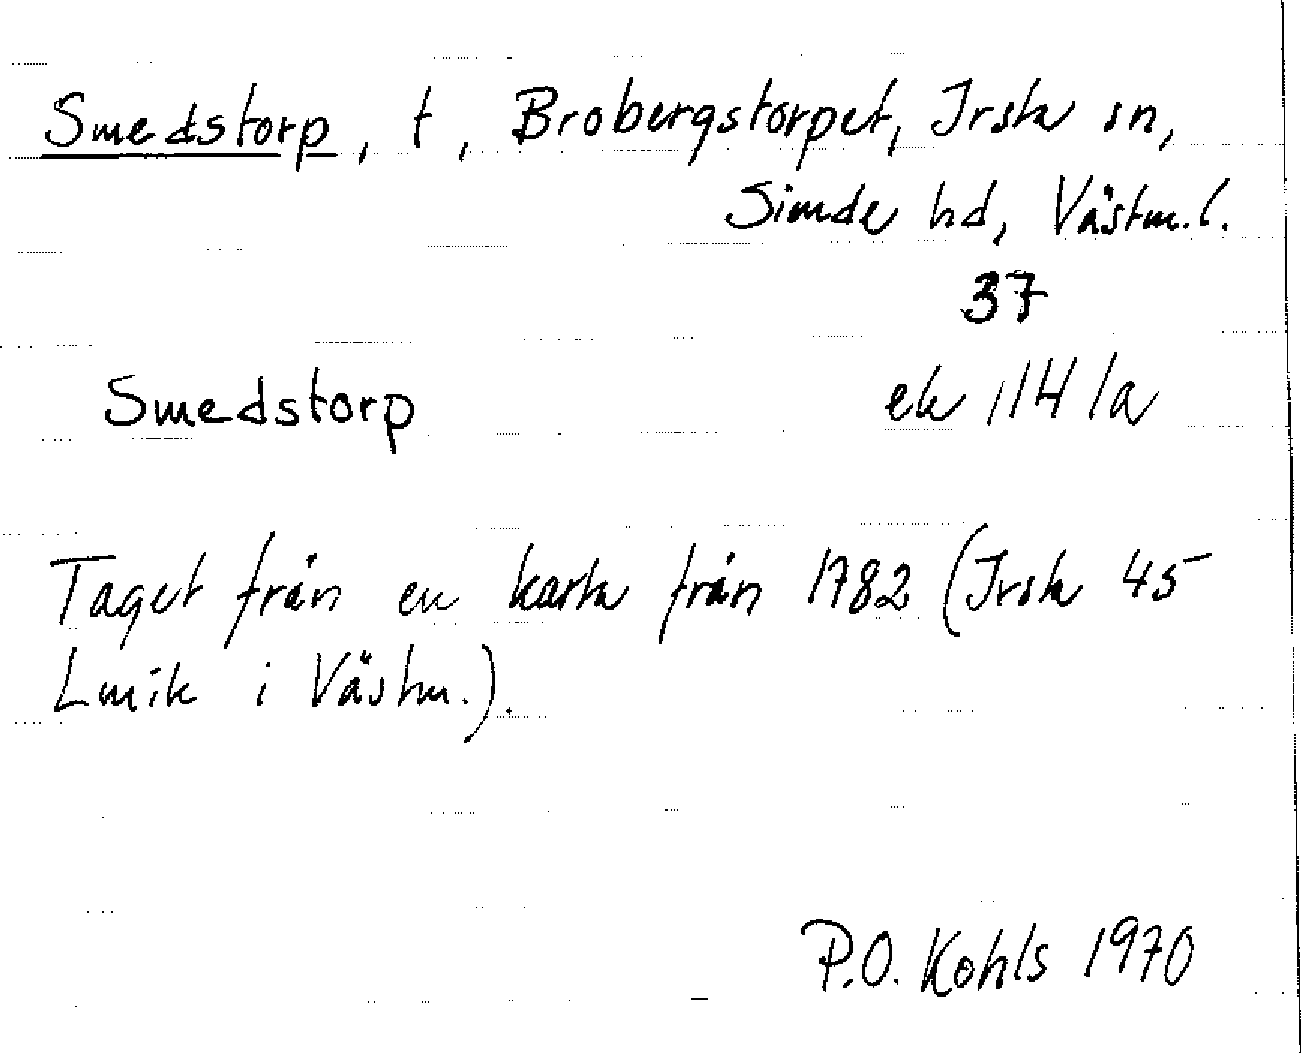 Smedstorp, t, Brobergstorpet, Irsta sn,
Siende hd, Västm.l.
37
Smedstorp ek 11H 1a
Taget från en karta från 1782 (Irsta 45
Lmik i Västm.).
P.O. Kohls 1970